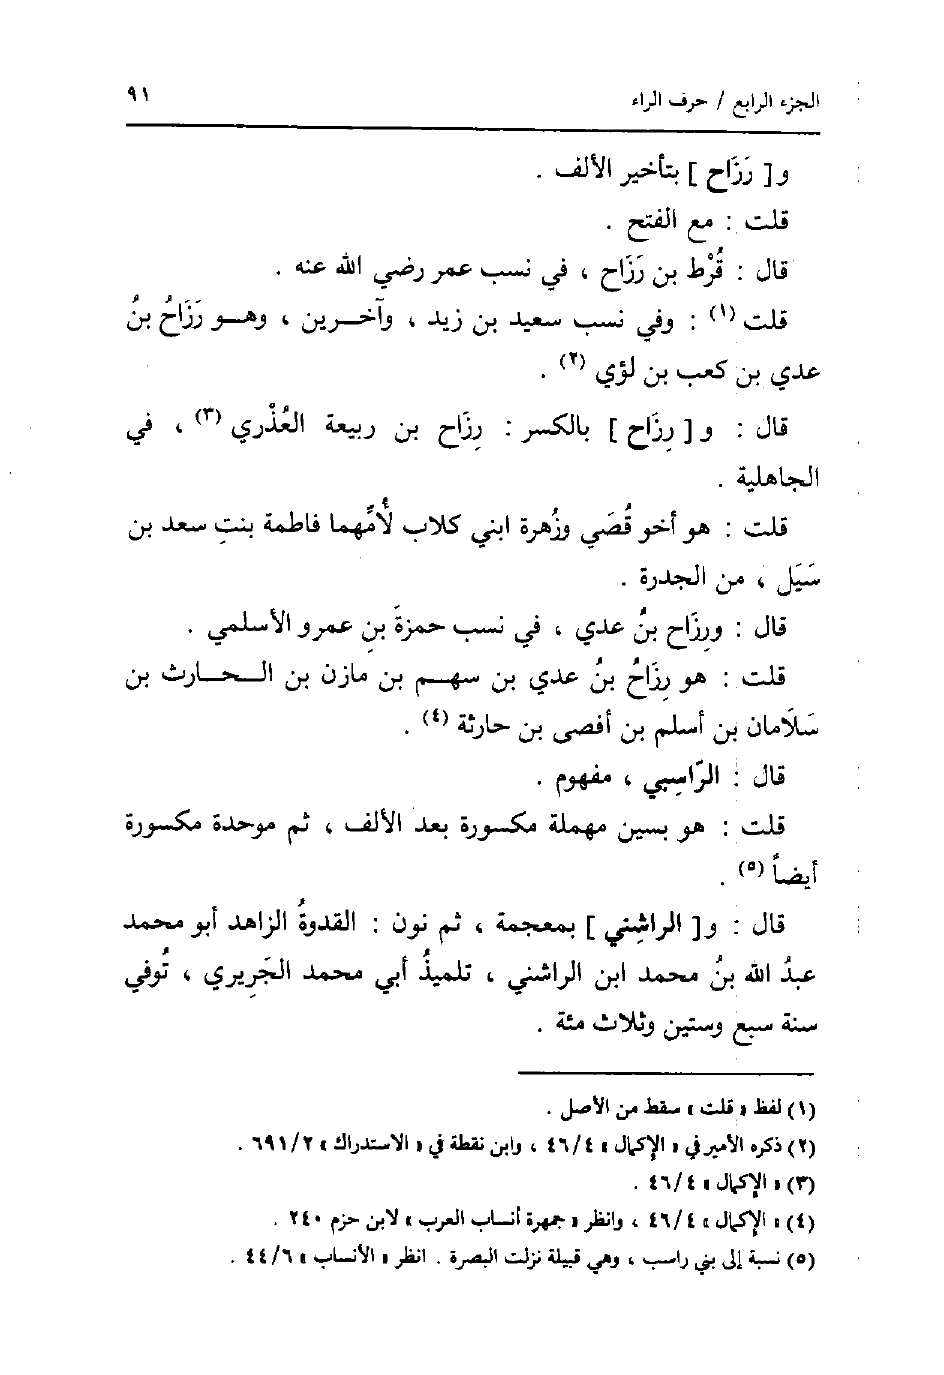 الجزء الرابع / حرف الراء ٩١
و[ رَزَاح ] بتأخير الألف .
قلت : مع الفتح .
قال : قُرْط بن رَزَاح ، في نسب عمر رضي الله عنه .
قلت (١) : وفي نسب سعيد بن زيد ، وآخرين ، وهو رَزَاحُ بنُ
عدي بن كعب بن لؤي (٢) .
قال : و[ رِزَاح ] بالكسر : رِزَاح بن ربيعة العُذْري (٣) ، في
الجاهلية .
قلت : هو أخو قُصَي وزُهرة ابني كلاب لأُمِّهما فاطمة بنتِ سعد بن
سَيَل ، من الجدرة .
قال : ورِزَاح بنُ عدي ، في نسب حمزةَ بنِ عمرو الأسلمي .
قلت : هو رِزَاحُ بنُ عدي بن سهم بن مازن بن الحارث بن
سَلَامان بن أسلم بن أفصى بن حارثة (٤) .
قال : الرّاسِبي ، مفهوم .
قلت : هو بسين مهملة مكسورة بعد الألف ، ثم موحدة مكسورة
أيضاً (٥) .
قال : و[ الراشِني ] بمعجمة ، ثم نون : القدوةُ الزاهد أبو محمد
عبدُ الله بنُ محمد ابن الراشني ، تلميذُ أبي محمد الجَرِيري ، تُوفي
سنة سبع وستين وثلاث مئة .
(١) لفظ « قلت » سقط من الأصل .
(٢) ذكره الأمير في « الإكمال » ٤٦/٤ ، وابن نقطة في « الاستدراك » ٦٩١/٢ .
(٣) « الإكمال » ٤٦/٤ .
(٤) « الإكمال » ٤٦/٤ ، وانظر « جمهرة أنساب العرب » لابن حزم ٢٤٠ .
(٥) نسبة إلى بني راسب ، وهي قبيلة نزلت البصرة . انظر « الأنساب » ٤٤/٦ .